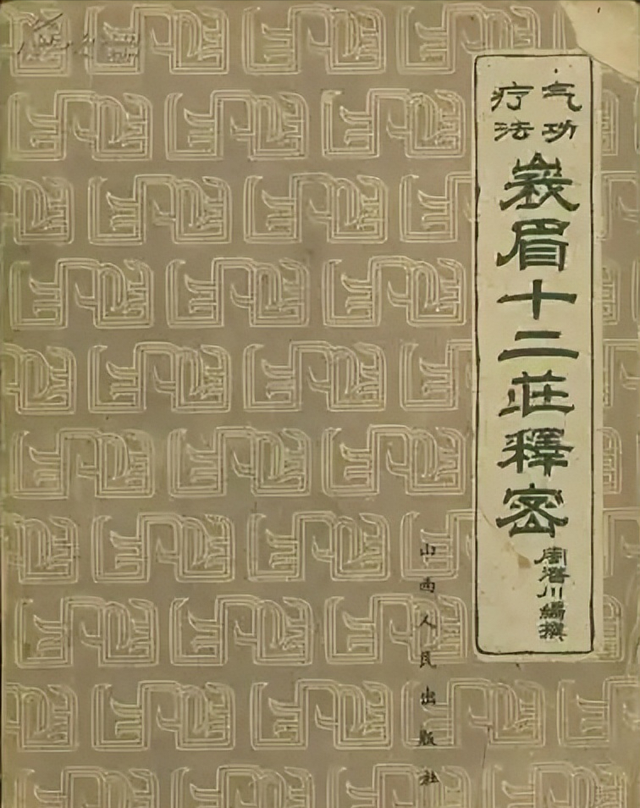 气功
疗法
峩眉十二莊釋密
周潜川編撰
山西人民出版社